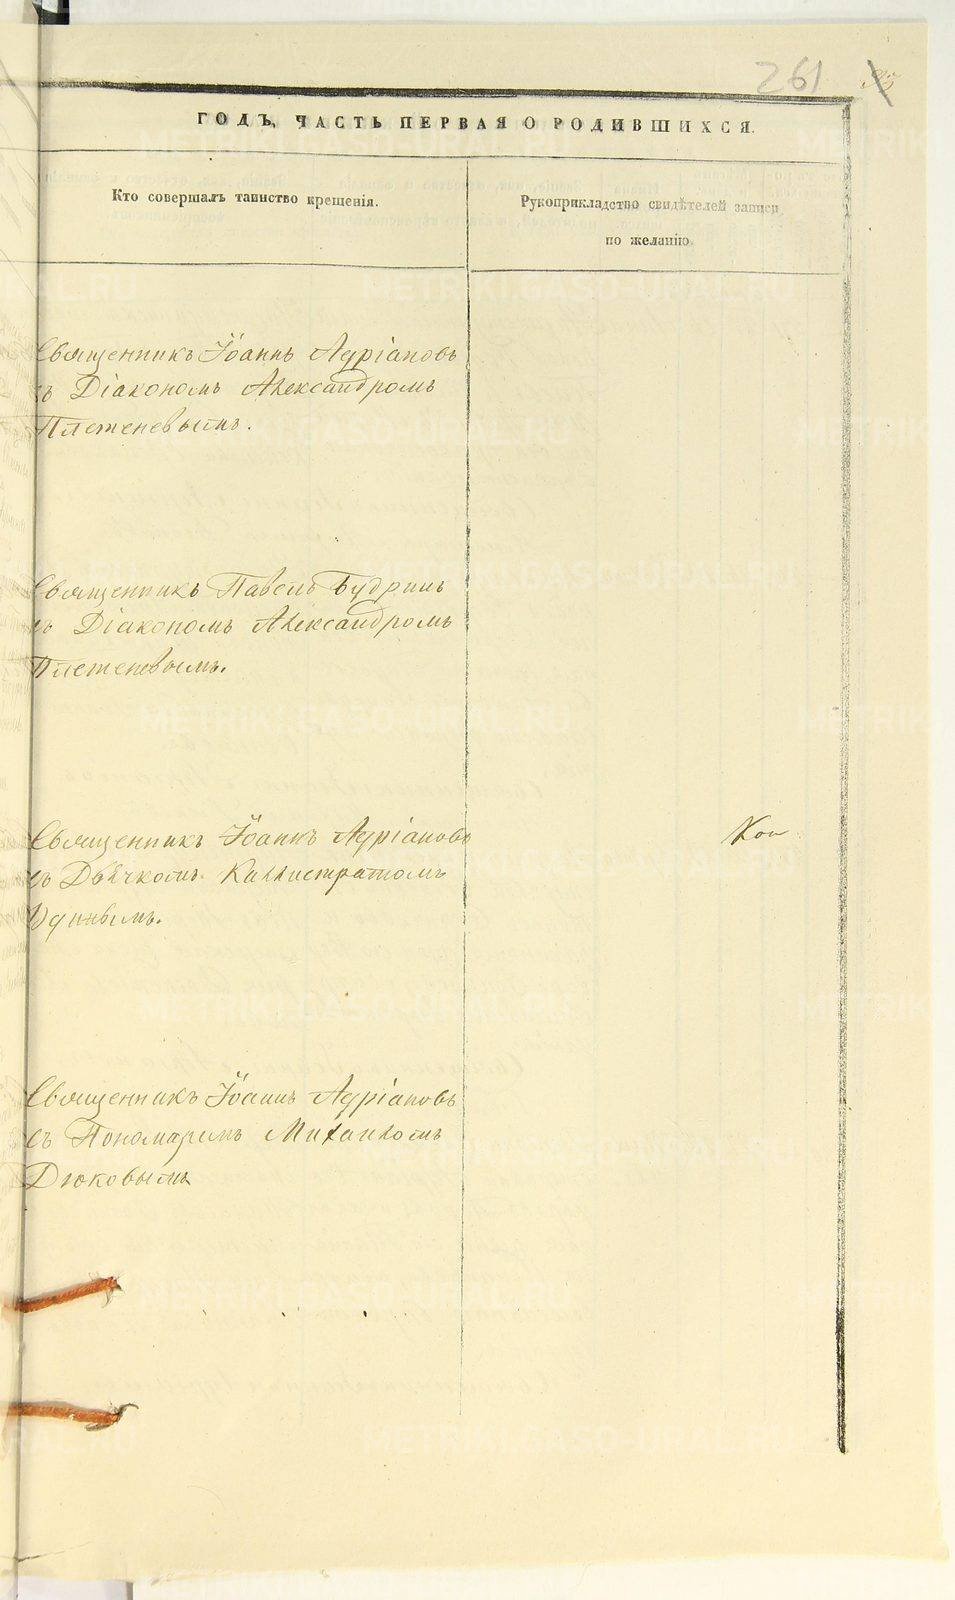 261
ГОДЪ, ЧАСТЬ ПЕРВАЯ О РОДИВШИХСЯ.
Кто совершалъ таинство крещенія.
Рукоприкладство свидѣтелей записи
по желанію.
Священникъ Іоаннъ Адріановъ
съ Діакономъ Александромъ
Плетеневымъ.
Священникъ Павелъ Будринъ
съ Діакономъ Александромъ
Плетеневымъ.
Священникъ Іоаннъ Адріановъ
съ Дьячкомъ Каллистратомъ
Священникъ Іоаннъ Адріановъ
съ Пономаремъ Михаиломъ
Дюковымъ
METRIKI.GASO-URAL.RU